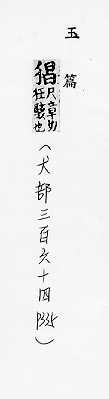 玉篇
猖尺章切狂駭也
(犬部三百六十四P335)